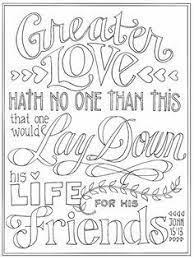 Greater
LOVE
HATH NO ONE THAN THIS
that one
would
Lay Down
his
LIFE
FOR HIS
Friends
JOHN
15:13